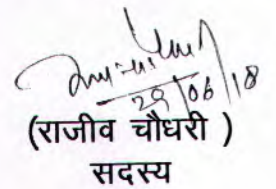 29/06/18
(राजीव चौधरी )
सदस्य